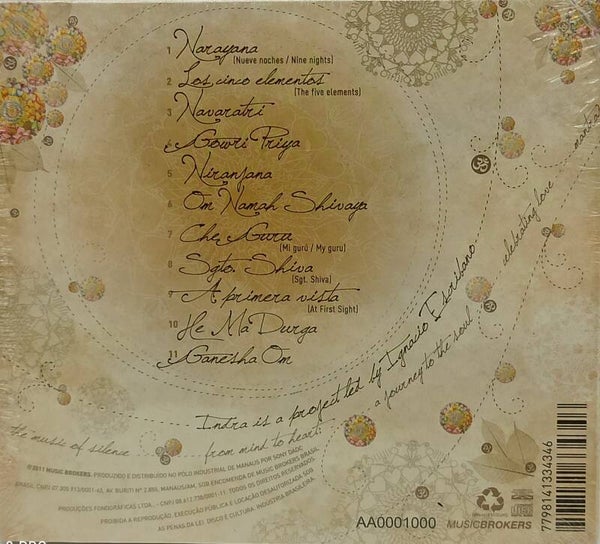 1 Narayana
(Nueve noches / Nine nights)
2 Los cinco elementos
(The five elements)
3 Navaratri
4 Gowri Priya
5 Niranjana
6 Om Namah Shivaya
7 Che Guru
(Mi gurú / My guru)
8 Sgto. Shiva
(Sgt. Shiva)
9 A primera vista
(At First Sight)
10 He Ma Durga
11 Ganesha Om
Indra is a project led by Ignacio Escribano
celebrating love
mantras
a journey to the soul
from mind to heart
the music of silence
©2011 MUSIC BROKERS. PRODUZIDO E DISTRIBUÍDO NO PÓLO INDUSTRIAL DE MANAUS POR SONY DADC
BRASIL CNPJ 07.305.913/0001-62, AV. BURITI Nº 2.850, MANAUS/AM, SOB ENCOMENDA DE MUSIC BROKERS BRASIL
PRODUÇÕES FONOGRÁFICAS LTDA. - CNPJ 08.612.738/0001-11. TODOS OS DIREITOS RESERVADOS.
PROIBIDA A REPRODUÇÃO, EXECUÇÃO PÚBLICA E LOCAÇÃO DESAUTORIZADA SOB
AS PENAS DA LEI. DISCO É CULTURA. INDÚSTRIA BRASILEIRA.
AA0001000
MUSICBROKERS
7798141334346